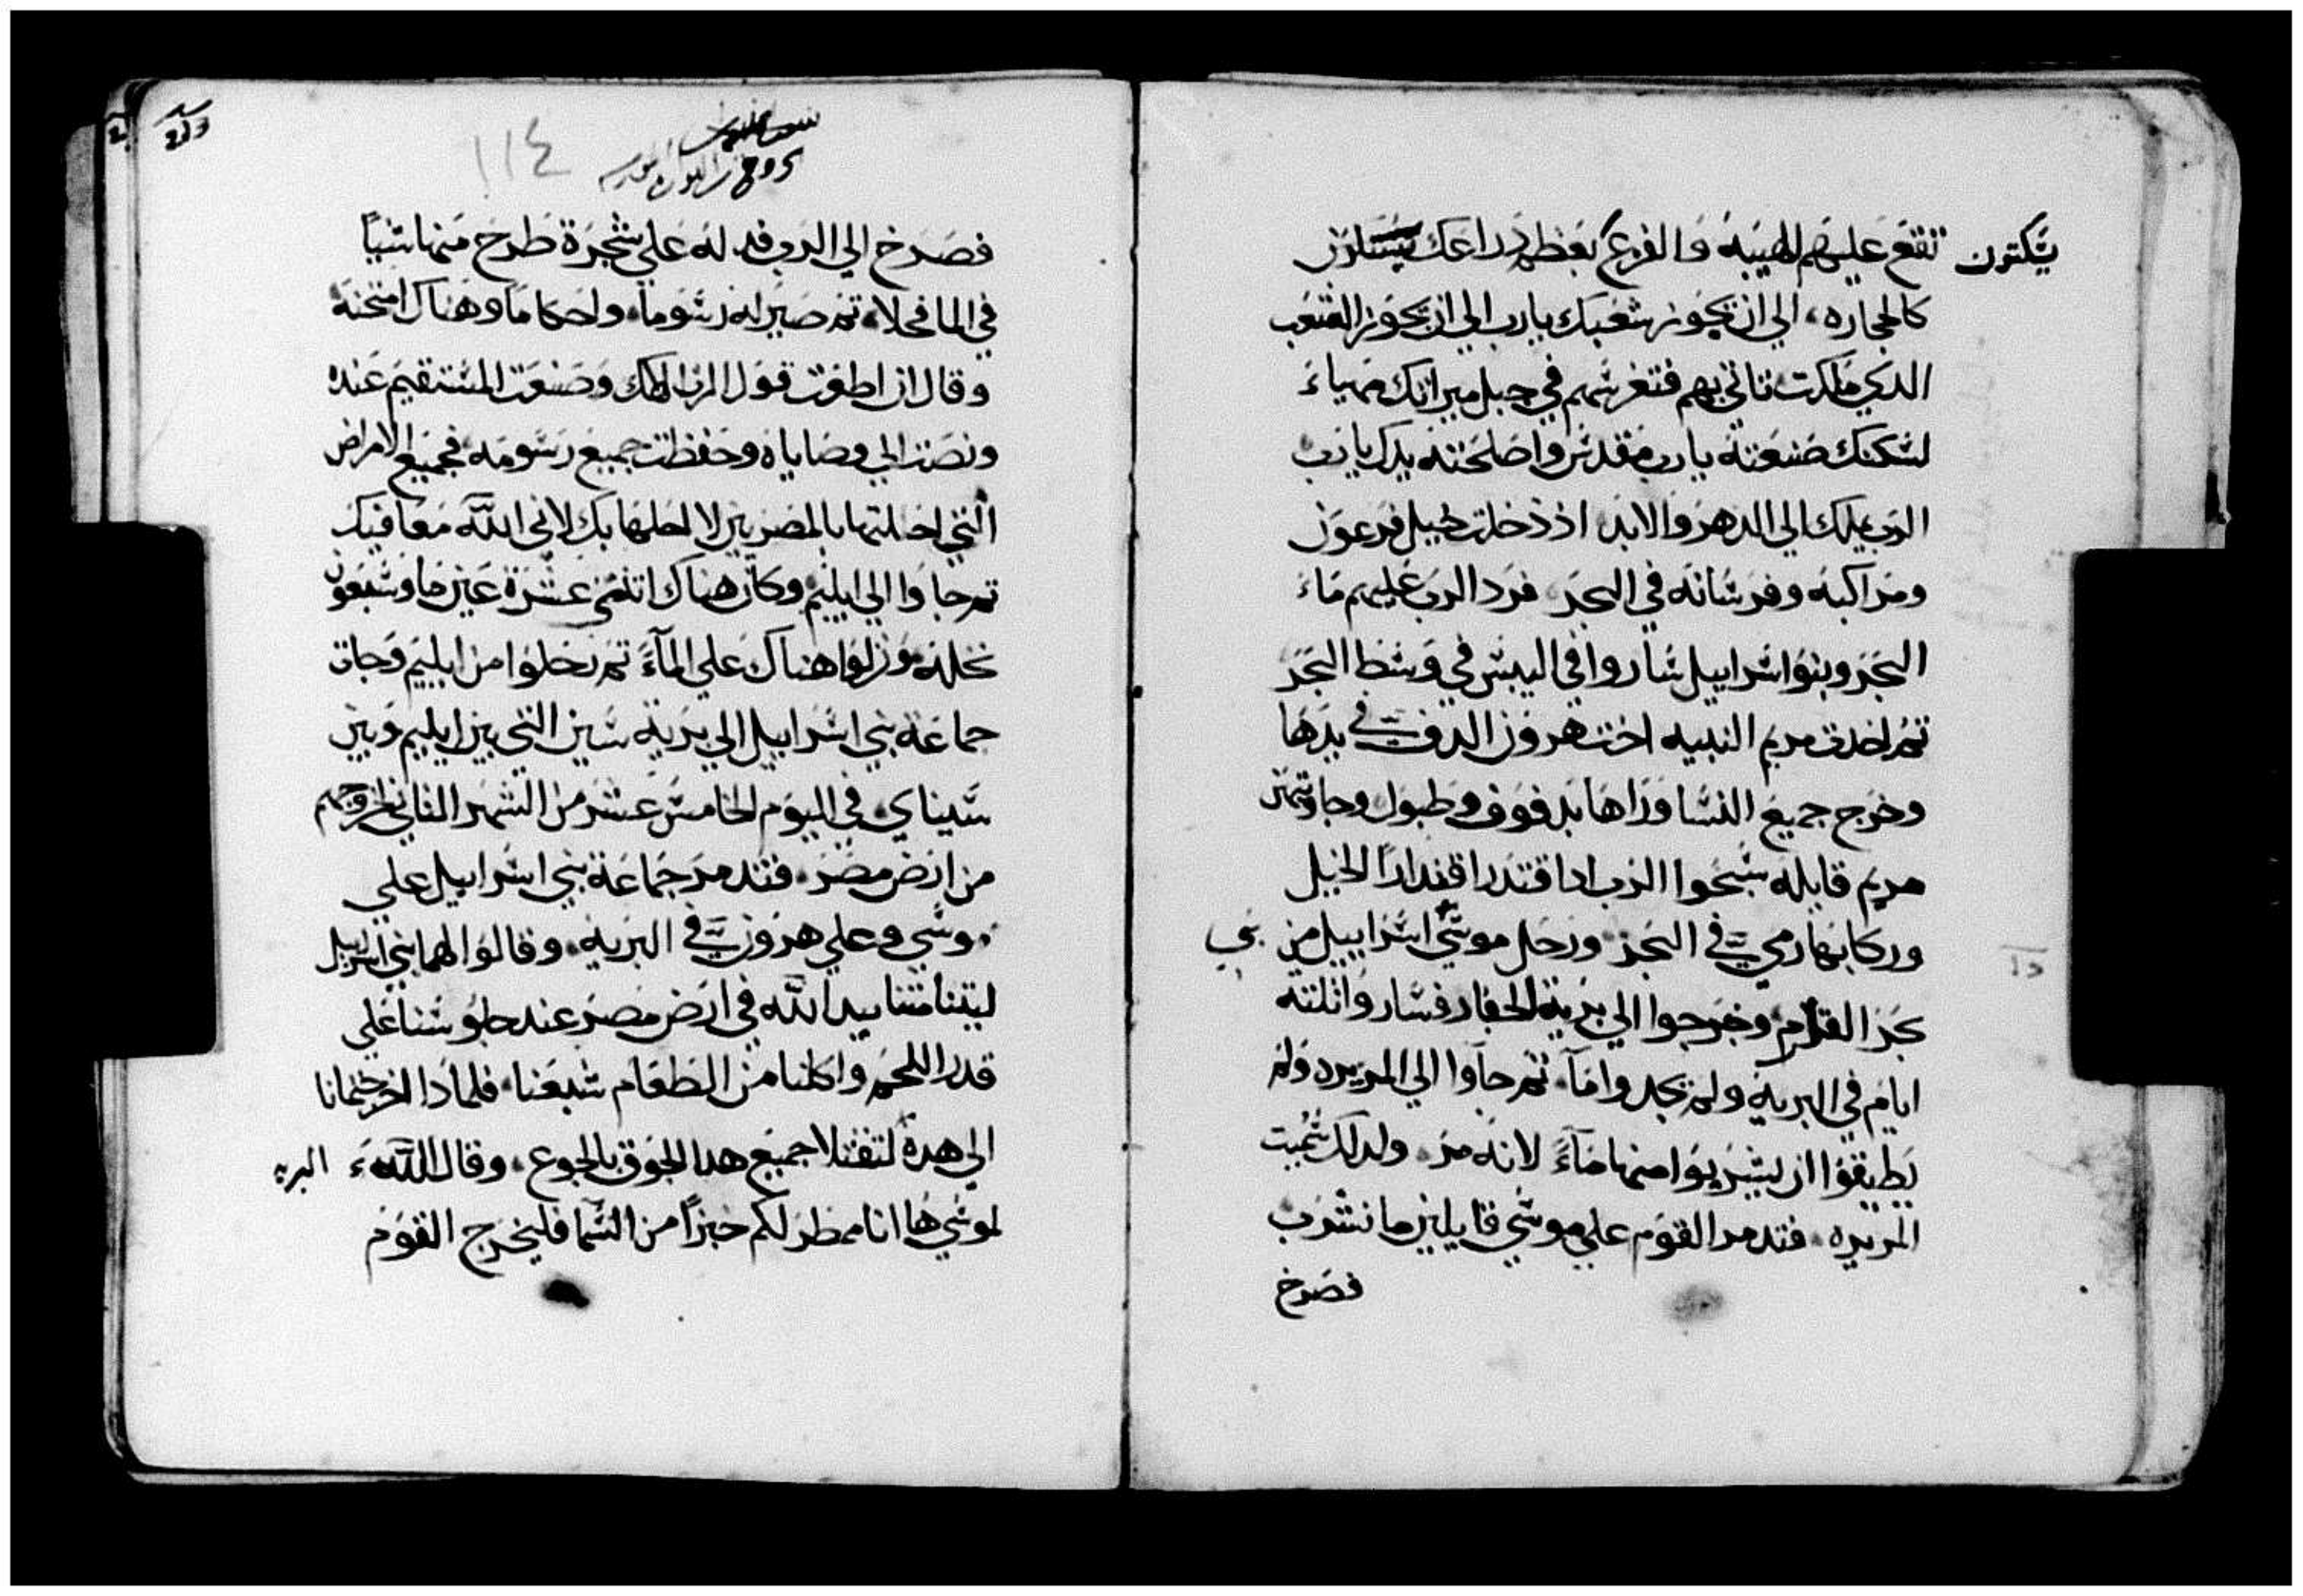 تقع عليهم الهيبه والفزع بعظم دراعك يسكتون
كالحجاره، الي ان يجوز شعبك يا رب الي ان يجوز الشعب
الدي ملكت تاتي بهم فتغرسهم في جبل ميراتك مهياء
لسكنك صنعته يا رب مقدس واصلحته يدك يا رب
الرب يملك الي الدهر والابد اذ دخلت خيل فرعون
ومراكبه وفرسانه في البحر فرد الرب عليهم ماء
البحر وبنوا اسراييل ساروا في اليبس في وسط البحر
تم اخدت مريم النبيه اخت هرون الدف في يدها
وخرج جميع النسا وراها بدفوف وطبول وجاوبتهن
مريم قايله سبحوا الرب ادا اقتدر اقتدارا الخيل
وركابها رمي في البحر ورحل موسي اسراييل من بني
بحر القلزم وخرجوا الي برية الجفار فساروا تلتة
ايام في البريه ولم يجدوا مآ، تم جآوا الي المريره ولم
يطيقوا ان يشربوا منها مآءً لانه مر ولدلك سُميت
المريره، فتدمر القوم علي موسي قايلين ما نشرب
فصرخ
١١٤
فصرخ الي الرب فدله علي شجرة طرح منها شياً
في الما فحلا، تم صير له رسوما، واحكاما وهناك امتحنه
وقال ان اطعت قول الرب الهك وصنعت المستقيم عنده
ونصت الي وصاياه وحفظت جميع رسومه، فجميع الامراض
التي احللتها بالمصريين لا احلها بك لاني اللّه معافيك
تم جاوا الي ايليم وكان هناك اتنتي عشرة عين ما وسبعون
نخله ونزلوا هناك علي المآءً تم رحلوا من ايليم وجات
جماعة بني اسراييل الي برية سين التي بين ايليم وبين
سيناي في اليوم الخامس عشر من الشهر التاني لخروجهم
من ارض مصر، فتدمر جماعة بني اسراييل علي
موسي وعلي هرون في البريه، وقالوا لهما بني اسراييل
ليتنا متنا بيد اللّه في ارض مصر عند جلوسنا علي
قدر اللحم واكلنا من الطعام شبعنا، فلمادا اخرجتمانا
الي هدة البريه لتقتلا جميع هدا الجوق بالجوع، وقال اللّه
لموسي ها انا ممطر لكم خبزاً من السما فليخرج القوم